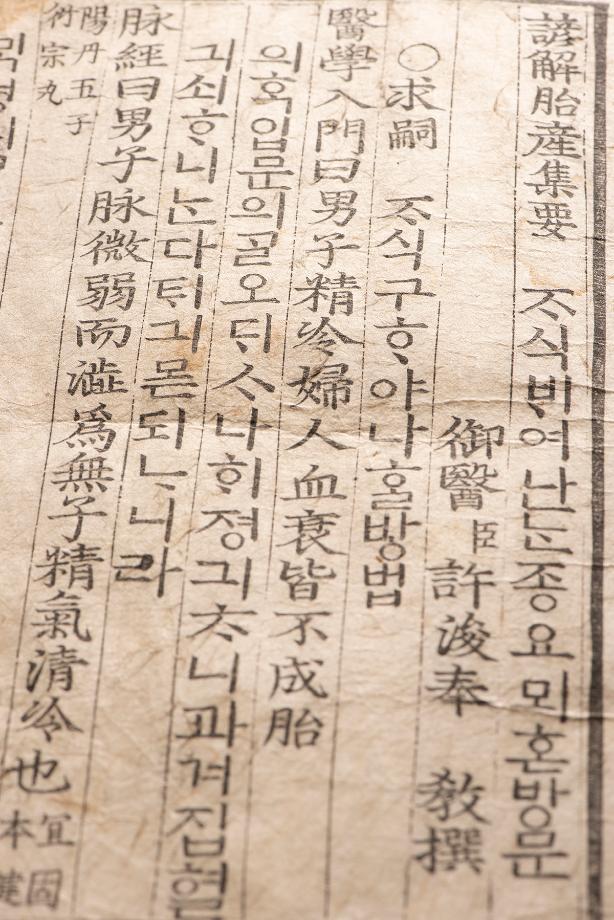 諺解胎産集要 ᄌᆞ식ᄇᆡ여난ᄂᆞᆫ죵요뫼혼방문
御醫臣許浚奉 敎撰
○求嗣 ᄌᆞ식구ᄒᆞ야나홀방법
醫學入門曰男子精冷婦人血衰皆不成胎
의ᄒᆞᆨ입문의ᄀᆞᆯ오ᄃᆡᄉᆞ나ᄒᆡ졍긔ᄎᆞ니과겨집혈
긔쇠ᄒᆞ니ᄂᆞᆫ다ᄐᆡ긔몯되ᄂᆞ니라
脉經曰男子脉微弱而澁爲無子精氣清冷也
宜固
本健
陽丹五子
衍宗丸